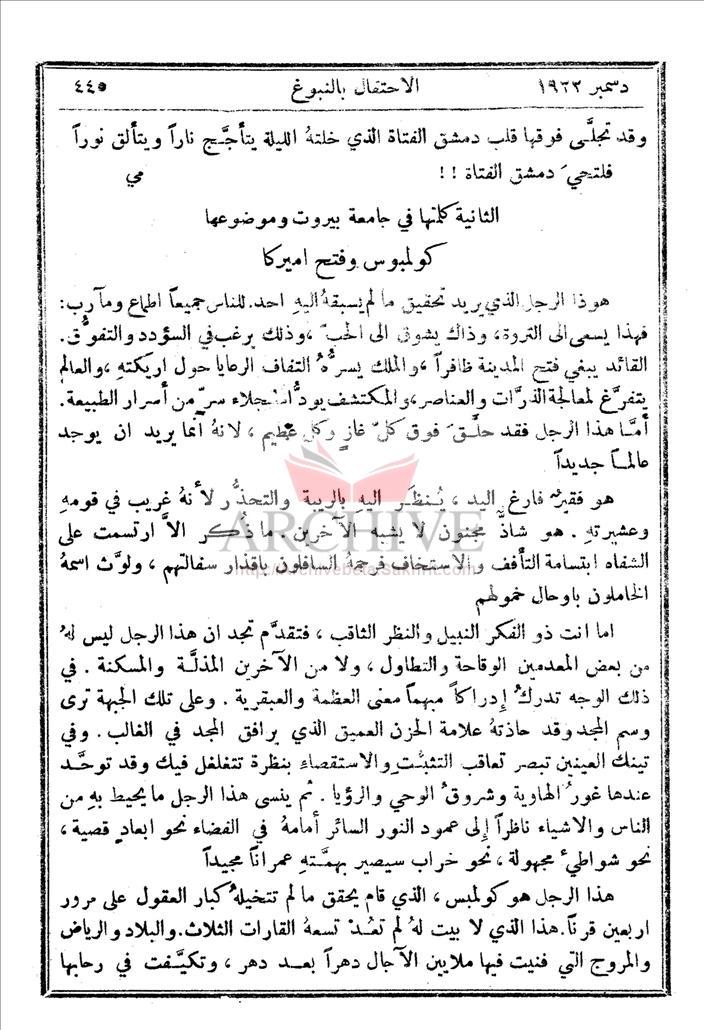 دسمبر ١٩٢٢ الاحتفال بالنبوغ ٤٤٥
وقد تجلَّى فرقها قلب دمشق الفتاة الذي خلتهُ الليلة يتأجَّج ناراً ويتألق نوراً
فلتحيَ دمشق الفتاة !! مي
الثانية كلمتها في جامعة بيروت وموضوعها
كولمبوس وفتح اميركا
هوذا الرجل الذي يريد تحقيق ما لم يسبقهُ اليهِ احد. للناس جميعاً اطماع ومآرب:
فهذا يسعى الى الثروة، وذاك يشوق الى الحبّ ، وذلك يرغب في السؤدد والتفوُّق.
القائد يبغي فتح المدينة ظافراً ، والملك يسرُّهُ التفاف الرعايا حول اريكتهِ ، والعالم
يتفرَّغ لمعالجة الذرَّات والعناصر ، والمكتشف يودُّ استجلاء سرّ من أسرار الطبيعة.
أمَّا هذا الرجل فقد حلَّقَ فوق كلّ غازٍ وكل عظيم ، لانهُ انما يريد ان يوجد
عالمـاً جديداً
هو فقيرٌ فارغ اليد ، يُنظَر اليهِ بالريبة والتحذُّر لأنهُ غريب في قومهِ
وعشيرتهِ . هو شاذٌّ مجنون لا يشبه الآخرين . ما ذُكر الاَّ ارتسمت على
الشفاه ابتسامة التأفف والاستخاف فرجمهُ السافلون باقذار سفالتهم ، ولوَّث اسمهُ
الخاملون باوحال خمولهم
اما انت ذو الفكر النبيل والنظر الثاقب ، فتقدَّم تجد ان هذا الرجل ليس لهُ
من بعض المعدمين الوقاحة والتطاول ، ولا من الآخرين المذلَّة والمسكنة . في
ذلك الوجه تدركُ إدراكاً مبهماً معنى العظمة والعبقرية . وعلى تلك الجبهة ترى
وسم المجد وقد حاذتهُ علامة الحزن العميق الذي يرافق المجد في الغالب . وفي
تينك العينين تبصر تعاقب التثبُّت والاستقصاء بنظرة تتغلغل فيك وقد توحَّد
عندها غورُ الهاوية وشروقُ الوحي والرؤيا . ثم ينسى هذا الرجل ما يحيط بهِ من
الناس والاشياء ناظراً إلى عمود النور السائر أمامهُ في الفضاء نحو ابعادٍ قصية ،
نحو شواطئ مجهولة ، نحو خراب سيصير بهمَّتهِ عمراناً مجيداً
هذا الرجل هو كولمبس ، الذي قام يحقق ما لم تتخيلهُ كبار العقول على مرور
اربعين قرناً. هذا الذي لا بيت لهُ لم تعُد تسعهُ القارات الثلاث. والبلاد والرياض
والمروج التي فنيت فيها ملايين الآجال دهراً بعد دهر ، وتكيَّفت في رحابها
ARCHIVE